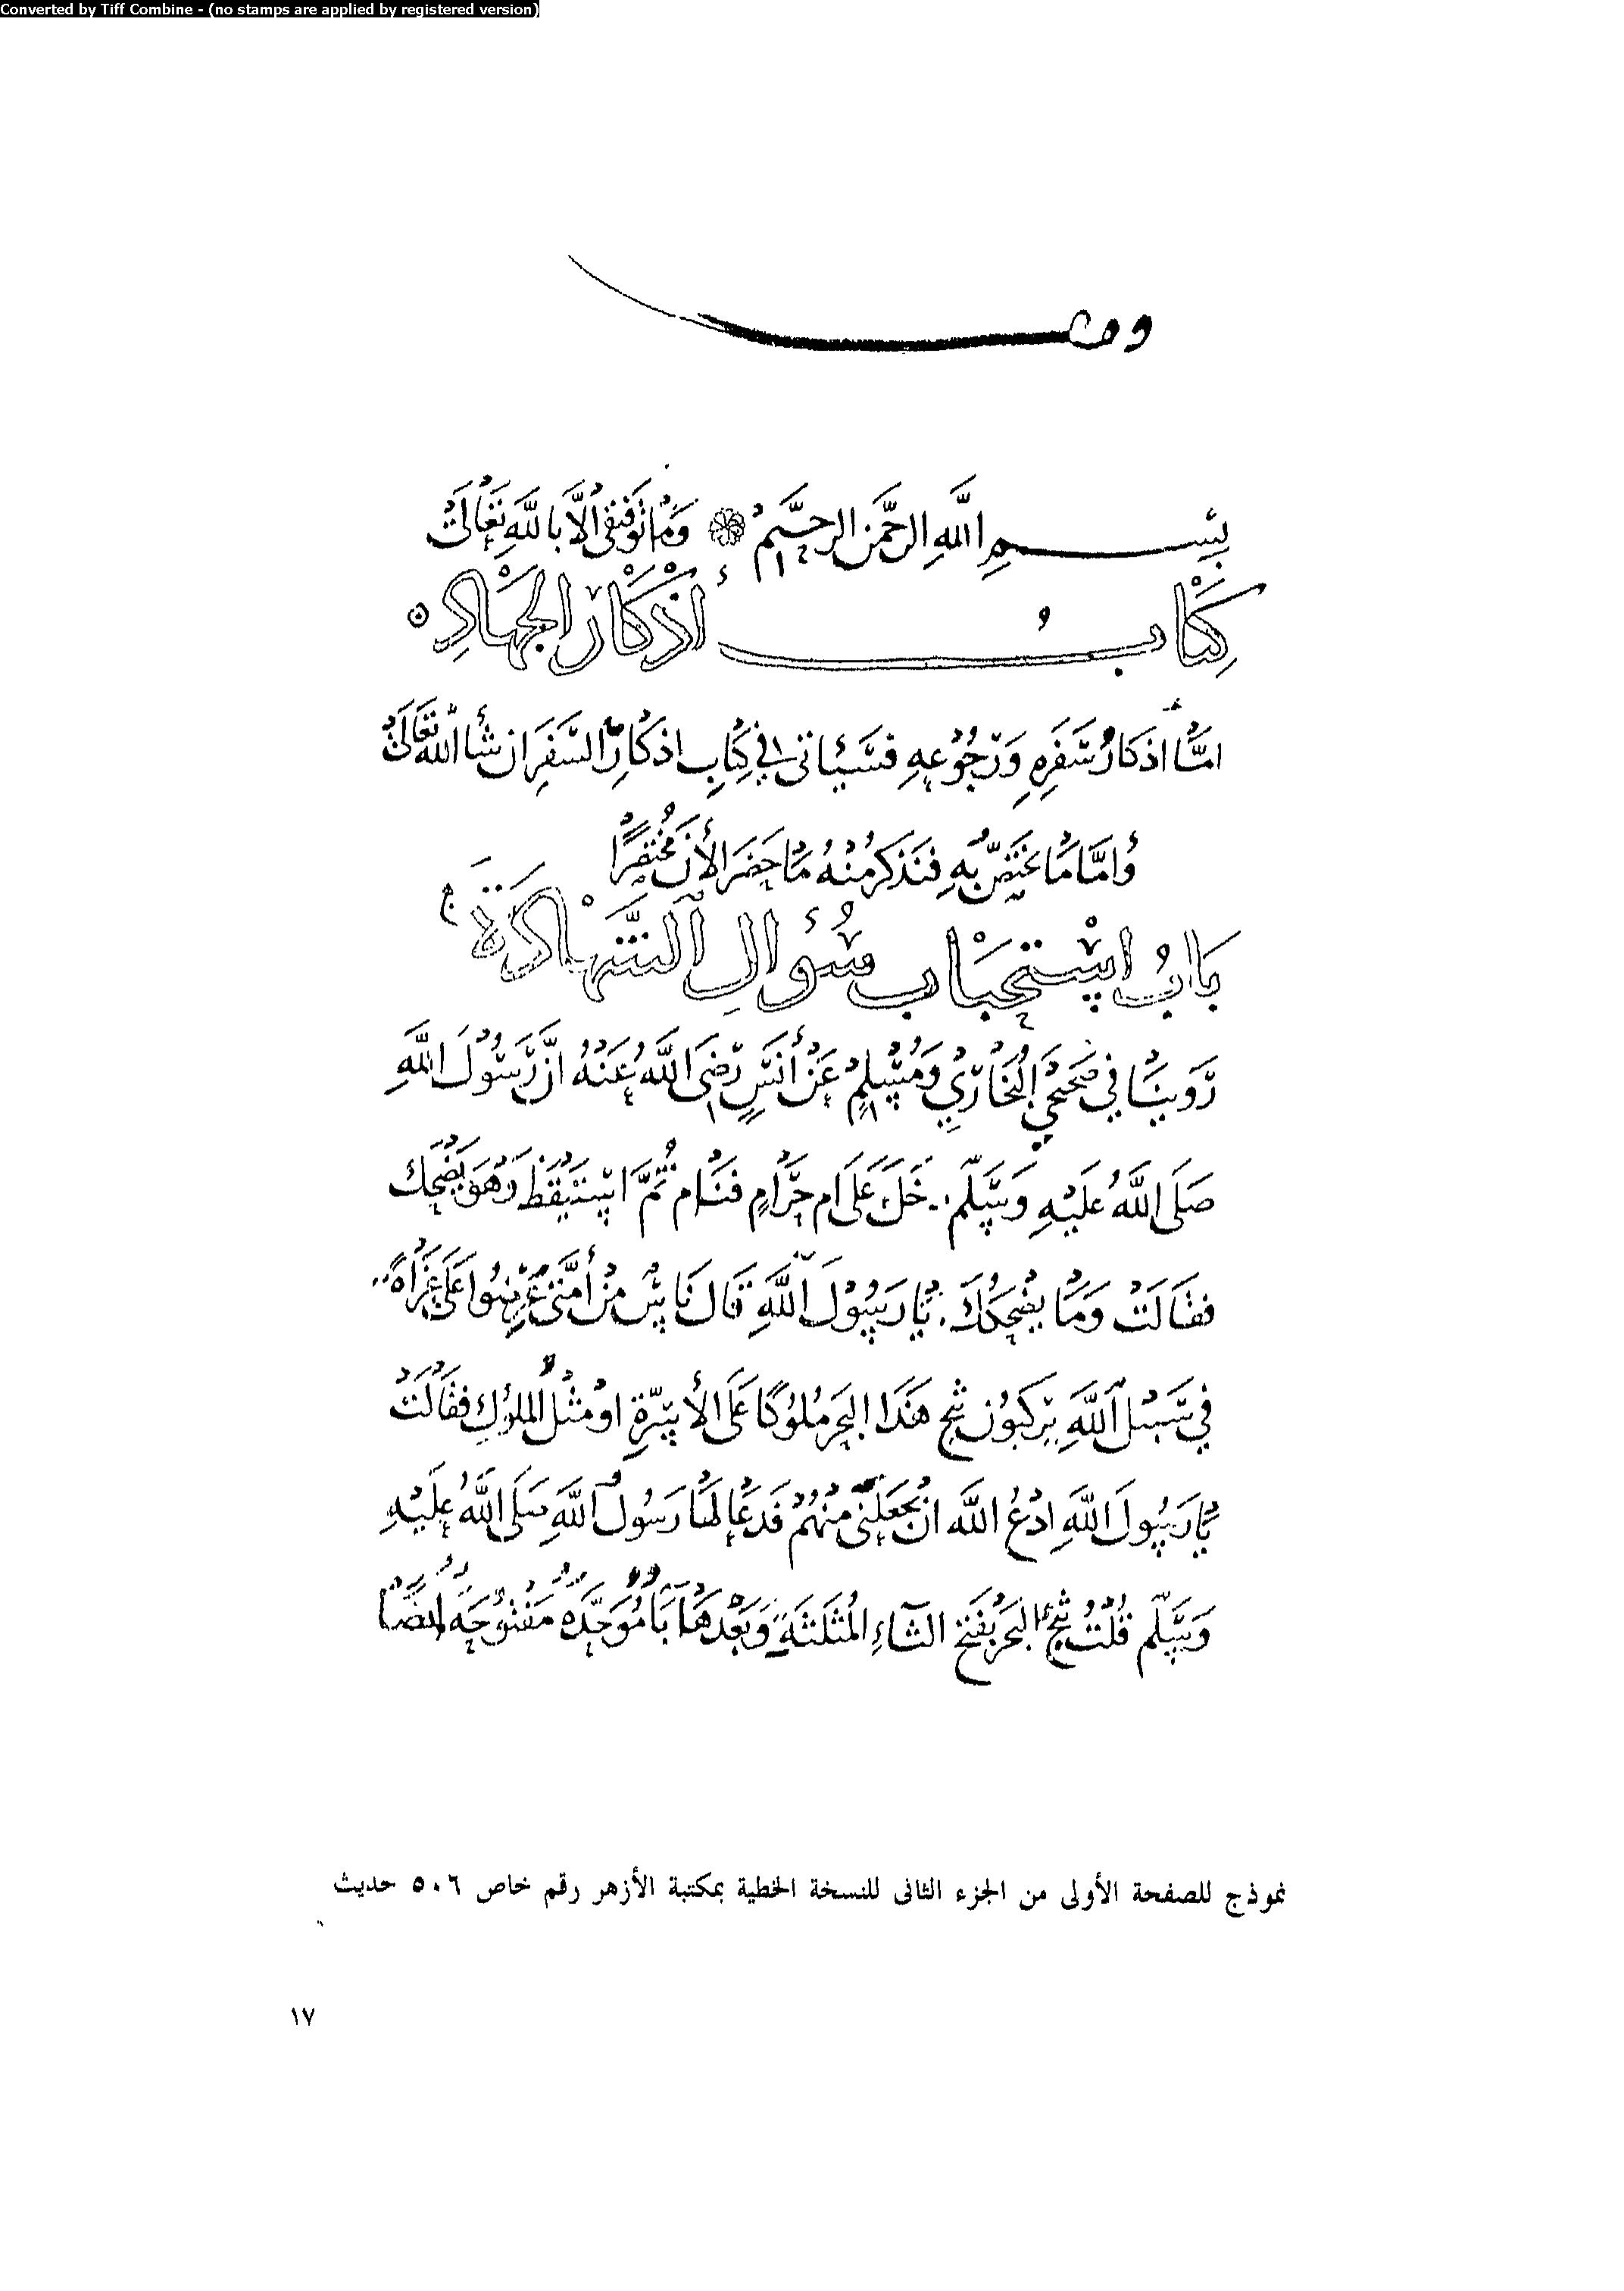 Converted by Tiff Combine - (no stamps are applied by registered version)
وقف
بِسْمِ اللَّهِ الرَّحْمَنِ الرَّحِيمِ وَمَا تَوْفِيقِي إِلَّا بِاللَّهِ تَعَالَى
كِتَابُ أَذْكَارِ الْجِهَادِ
امَّا اذكَارُ سَفَرِهِ وَرُجُوْعِهِ فَسَيَاتى فِي كِتَابِ اذكَارِ السَّفَرِ ان شَأ اللهُ تَعَالَى
وَامَّا مَا يختَصُّ بِهِ فَنَذكرُ مِنْهُ مَا حَضَرَ الأنَ مُخْتَصَرًا
بَابُ اسْتِحْبَابِ سُؤالِ الشَّهَادَةِ
رَوَينَا فِي صَحيحَيِ البُخَارِيِّ وَمُسْلِمٍ عَنْ أنَسٍ رَضِيَ اللَّهُ عَنْهُ انَّ رَسُوْلَ اللَّهِ
صَلَى اللَّهُ عَلَيْهِ وَسَلَّمَ دَخَلَ عَلَى ام حَرَامٍ فَنَام ثُمَّ اسْتَيْقَظَ وَهُوَ يَضْحَك
فقَالَتْ وَمَا يُضْحِكُكَ يَا رَسُوْلَ اللَّهِ قَالَ نَاسٌ مِنْ أُمَّتِي عُرِضُوا عَلَيَّ غزَاةً
فِي سَبِيل اللَّهِ يَركبُون ثبج هَذَا البَحرِ مُلوُكًا عَلَى الأسِرَّةِ اوْ مثْلُ الملوُك فقَالَتْ
يَا رَسُولَ اللَّهِ ادْعُ اللَّه انْ يَجْعَلَنِي مِنْهُمْ فَدَعَا لهَا رَسُولُ اللَّهِ صَلَى اللَّهُ عَلَيْهِ
وَسَلَّم قُلْتُ ثَبجُ البَحْر بفَتحِ الثاءِ المُثلثَةِ وَبَعْدهَا بَأ مُوَحَّدَة مَفتُوْحَة ايضًا
نموذج للصفحة الأولى من الجزء الثانى للنسخة الخطية بمكتبة الأزهر رقم خاص ٥٠٦ حديث
١٧